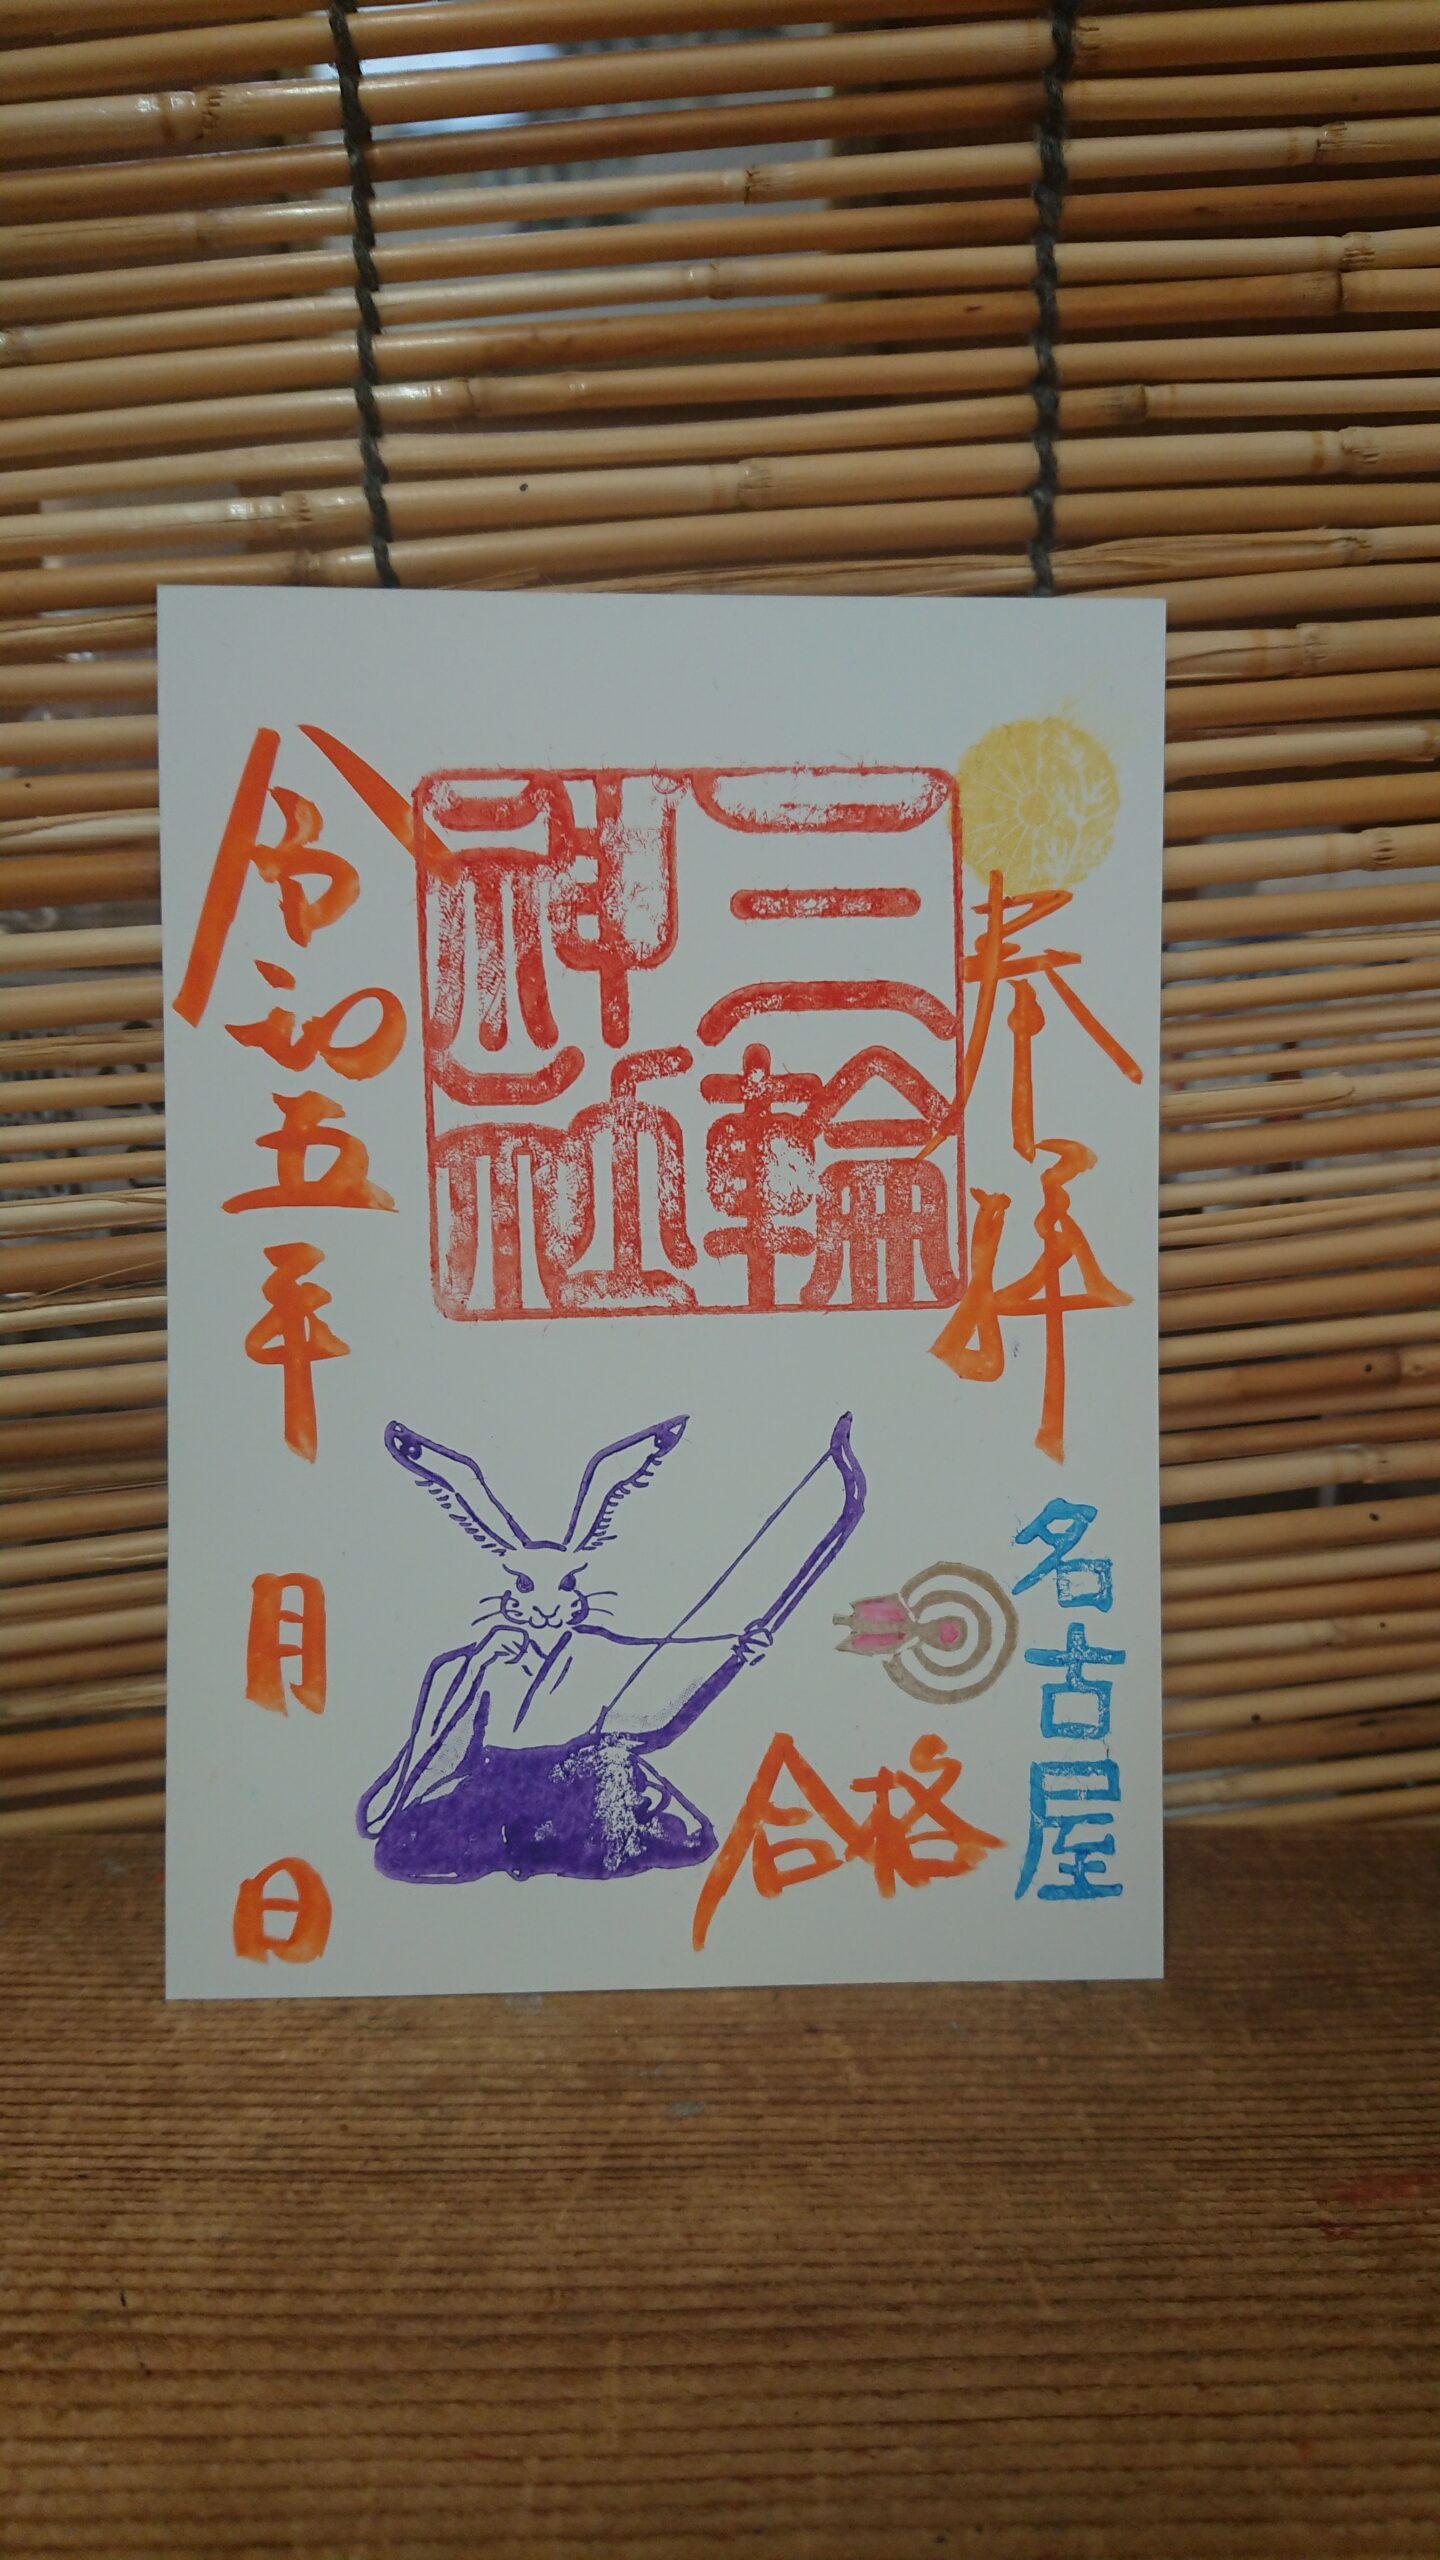 奉拝
名古屋
三輪
神社
合格
令和五年 月 日